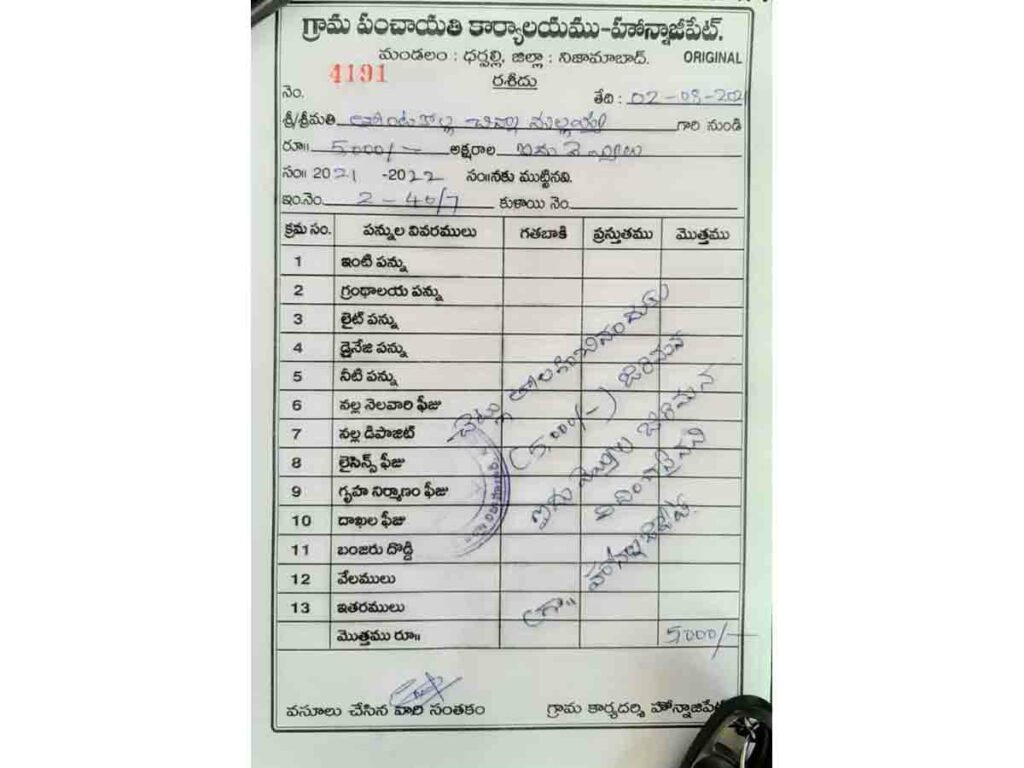 గ్రామ పంచాయతి కార్యాలయము-హోన్నాజీపేట్.
మండలం : ధర్పల్లి, జిల్లా : నిజామాబాద్. ORIGINAL
4191
రశీదు
నెం. తేది : 02-08-202
శ్రీ/శ్రీమతి చిన్న మల్లయ్య గారి నుండి
రూ॥ 5000/- అక్షరాల ఐదు వేలు
సం॥ 2021 -2022 సం॥నకు ముట్టినవి.
ఇం.నెం. 2-40/7 కుళాయి నెం.
క్రమ సం. పన్నుల వివరములు గతబాకి ప్రస్తుతము మొత్తము
1 ఇంటి పన్ను
2 గ్రంథాలయ పన్ను
3 లైట్ పన్ను
4 డ్రైనేజి పన్ను
5 నీటి పన్ను
6 నల్ల నెలవారి ఫీజు
7 నల్ల డిపాజిట్
8 లైసెన్స్ ఫీజు
9 గృహ నిర్మాణం ఫీజు
10 దాఖల ఫీజు
11 బంజరు దొడ్డి
12 వేలములు
13 ఇతరములు
చెట్లు తొలగించినందుకు
(5,000/-) జరిమాన
ఐదు వేల జరిమాన
గ్రా॥ హోన్నాజీపేట్.
మొత్తము రూ॥ 5000/-
వసూలు చేసిన వారి సంతకం గ్రామ కార్యదర్శి హోన్నాజీపేట్